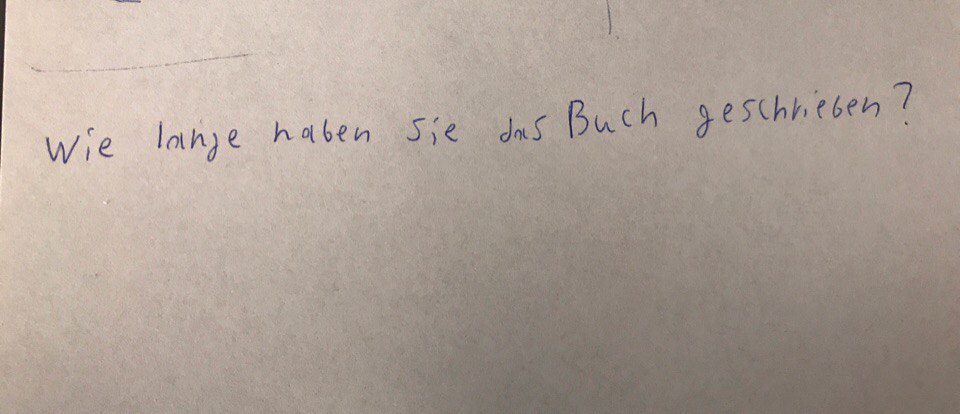 Wie lange haben sie das Buch geschrieben?